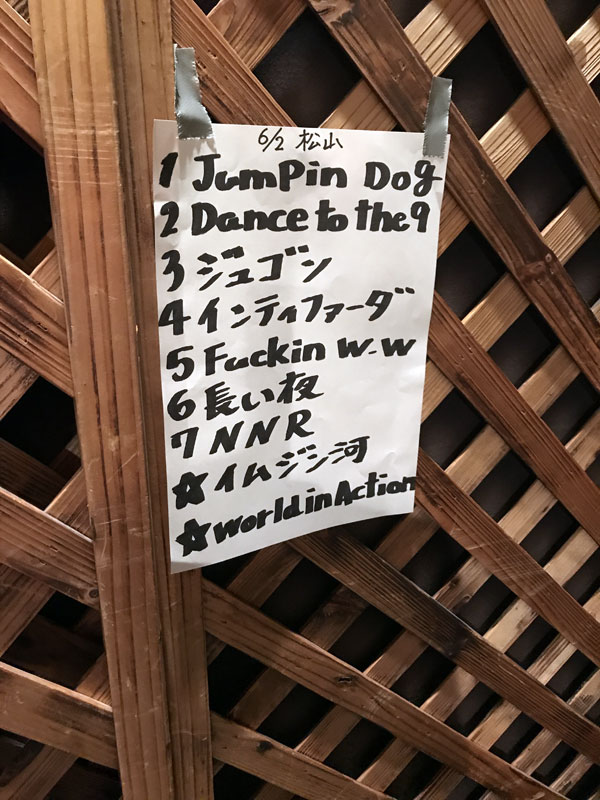 6/2 松山
1 JumPin Dog
2 Dance to the 9
3 ジュゴン
4 インティファーダ
5 Fuckin W-W
6 長い夜
7 NNR
☆ イムジン河
☆ World in Action